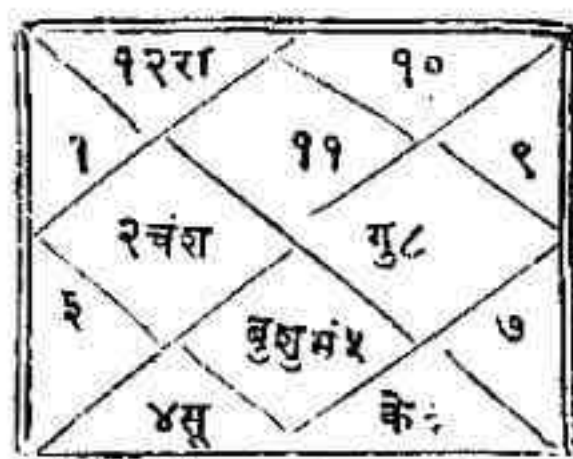 १२रा १०
१ ११ ९
२चंश गु८
३ बुशुमं५ ७
४सू के६